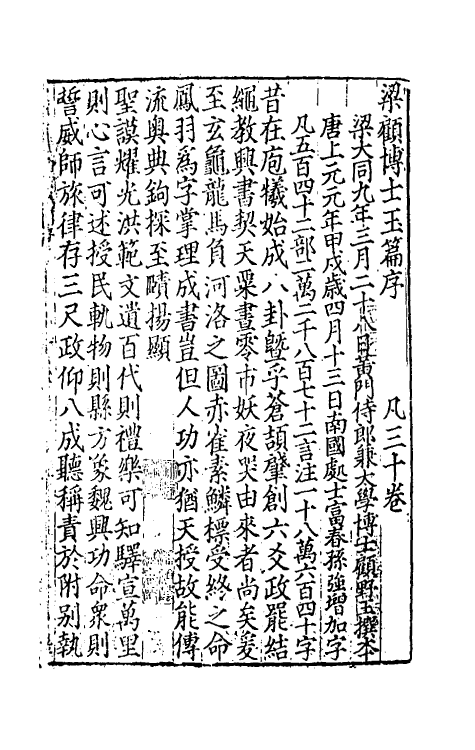 梁顧博士玉篇序 凡三十卷
梁大同九年三月二十八日黃門侍郎兼太學博士顧野王撰本
唐上元元年甲戌歲四月十三日南國處士富春孫強增加字
凡五百四十二部二萬二千八百七十二言注一十八萬六百四十字
昔在庖犧始成八卦曁乎蒼頡肇創六爻政罷結
繩教興書契天粟晝零市妖夜哭由來者尚矣爰
至玄龜龍馬負河洛之圖赤雀素鱗標受終之命
鳳羽爲字掌理成書豈但人功亦猶天授故能傳
流奧典鉤探至賾揚顯
聖謨耀光洪範文遺百代則禮樂可知驛宣萬里
則心言可述授民軌物則縣方象魏興功命衆則
誓威師旅律存三尺政仰八成聽稱責於附別執